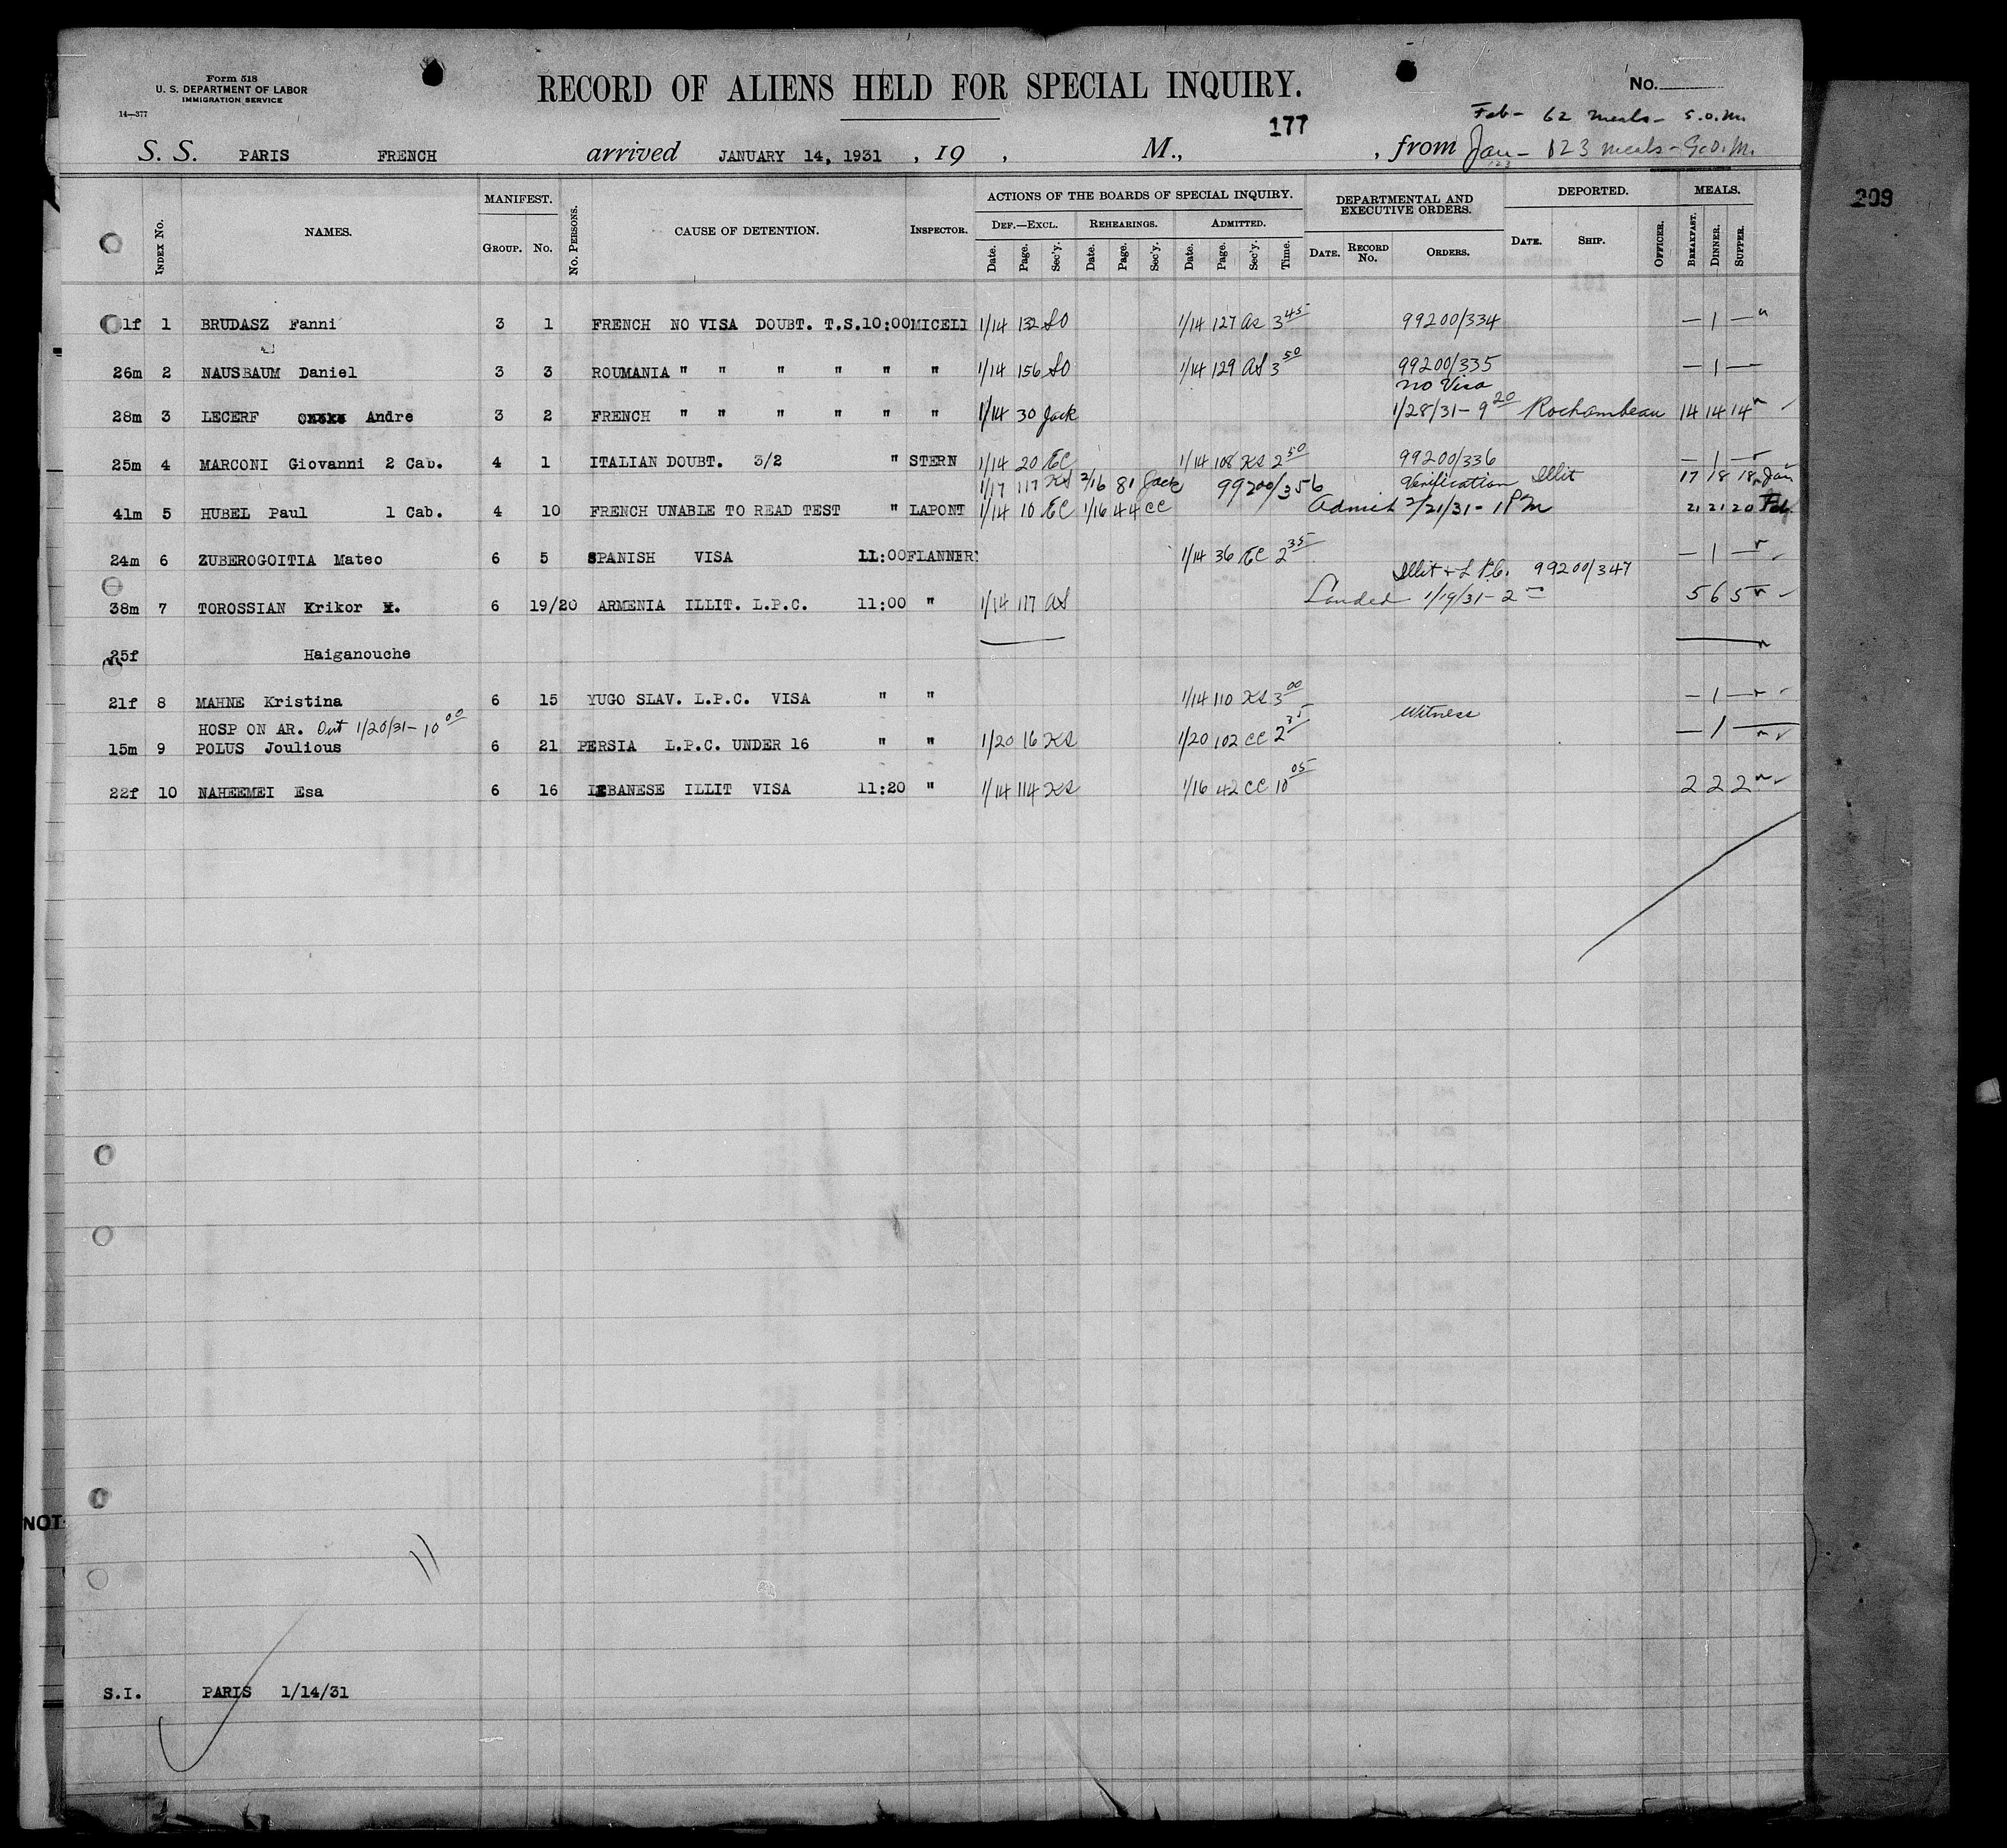 Form 518
U. S. DEPARTMENT OF LABOR
IMMIGRATION SERVICE
14—377
RECORD OF ALIENS HELD FOR SPECIAL INQUIRY.
No.
177
Feb - 62 meals - S.O.M.
S. S. PARIS FRENCH arrived JANUARY 14, 1931 , 19 , M., , from Jan - 123 meals - S.O.M.
123
209
INDEX No. NAMES. MANIFEST. GROUP. No. No. PERSONS. CAUSE OF DETENTION. INSPECTOR. ACTIONS OF THE BOARDS OF SPECIAL INQUIRY. DEF.—EXCL. Date. Page. Sec'y. REHEARINGS. Date. Page. Sec'y. ADMITTED. Date. Page. Sec'y. Time. DEPARTMENTAL AND EXECUTIVE ORDERS. DATE. RECORD No. ORDERS. DEPORTED. DATE. SHIP. OFFICER. MEALS. BREAKFAST. DINNER. SUPPER.
1f 1 BRUDASZ Fanni 3 1 FRENCH NO VISA DOUBT. T.S.10:00 MICELI 1/14 132 SO 1/14 127 as 3 45 99200/334 — 1 —
26m 2 NAUSBAUM Daniel 3 3 ROUMANIA " " " " " " 1/14 156 SO 1/14 129 AS 3 50 99200/335 — 1 —
no Visa
28m 3 LECERF Andre 3 2 FRENCH " " " " " " 1/14 30 Jack 1/28/31 - 9 20 Rochambeau 14 14 14
25m 4 MARCONI Giovanni 2 Cab. 4 1 ITALIAN DOUBT. 3/2 " STERN 1/14 20 EC 1/14 108 KS 2 50 99200/336 — 1 —
1/17 117 KS 2/16 81 Jack 99200/356 Verification Illit 17 18 18 Jan
41m 5 HUBEL Paul 1 Cab. 4 10 FRENCH UNABLE TO READ TEST " LAPONT 1/14 10 EC 1/16 44 CC Admit 2/21/31 - 1 PM 21 21 20 Feb.
24m 6 ZUBEROGOITIA Mateo 6 5 SPANISH VISA 11:00 FLANNERY 1/14 36 EC 2 35 — 1 —
Illit + L.P.C. 99200/347
38m 7 TOROSSIAN Krikor 6 19/20 ARMENIA ILLIT. L.P.C. 11:00 " 1/14 117 AS Landed 1/19/31 - 2 5 6 5
25f Haiganouche
21f 8 MAHNE Kristina 6 15 YUGO SLAV. L.P.C. VISA " " 1/14 110 KS 3 00 — 1 —
HOSP ON AR. Out 1/20/31 - 10 00 Witness
15m 9 POLUS Joulious 6 21 PERSIA L.P.C. UNDER 16 " " 1/20 16 KS 1/20 102 CC 2 35 — 1 —
22f 10 NAHEEMEI Esa 6 16 LEBANESE ILLIT VISA 11:20 " 1/14 114 KS 1/16 42 CC 10 05 2 2 2
NOT
S.I. PARIS 1/14/31